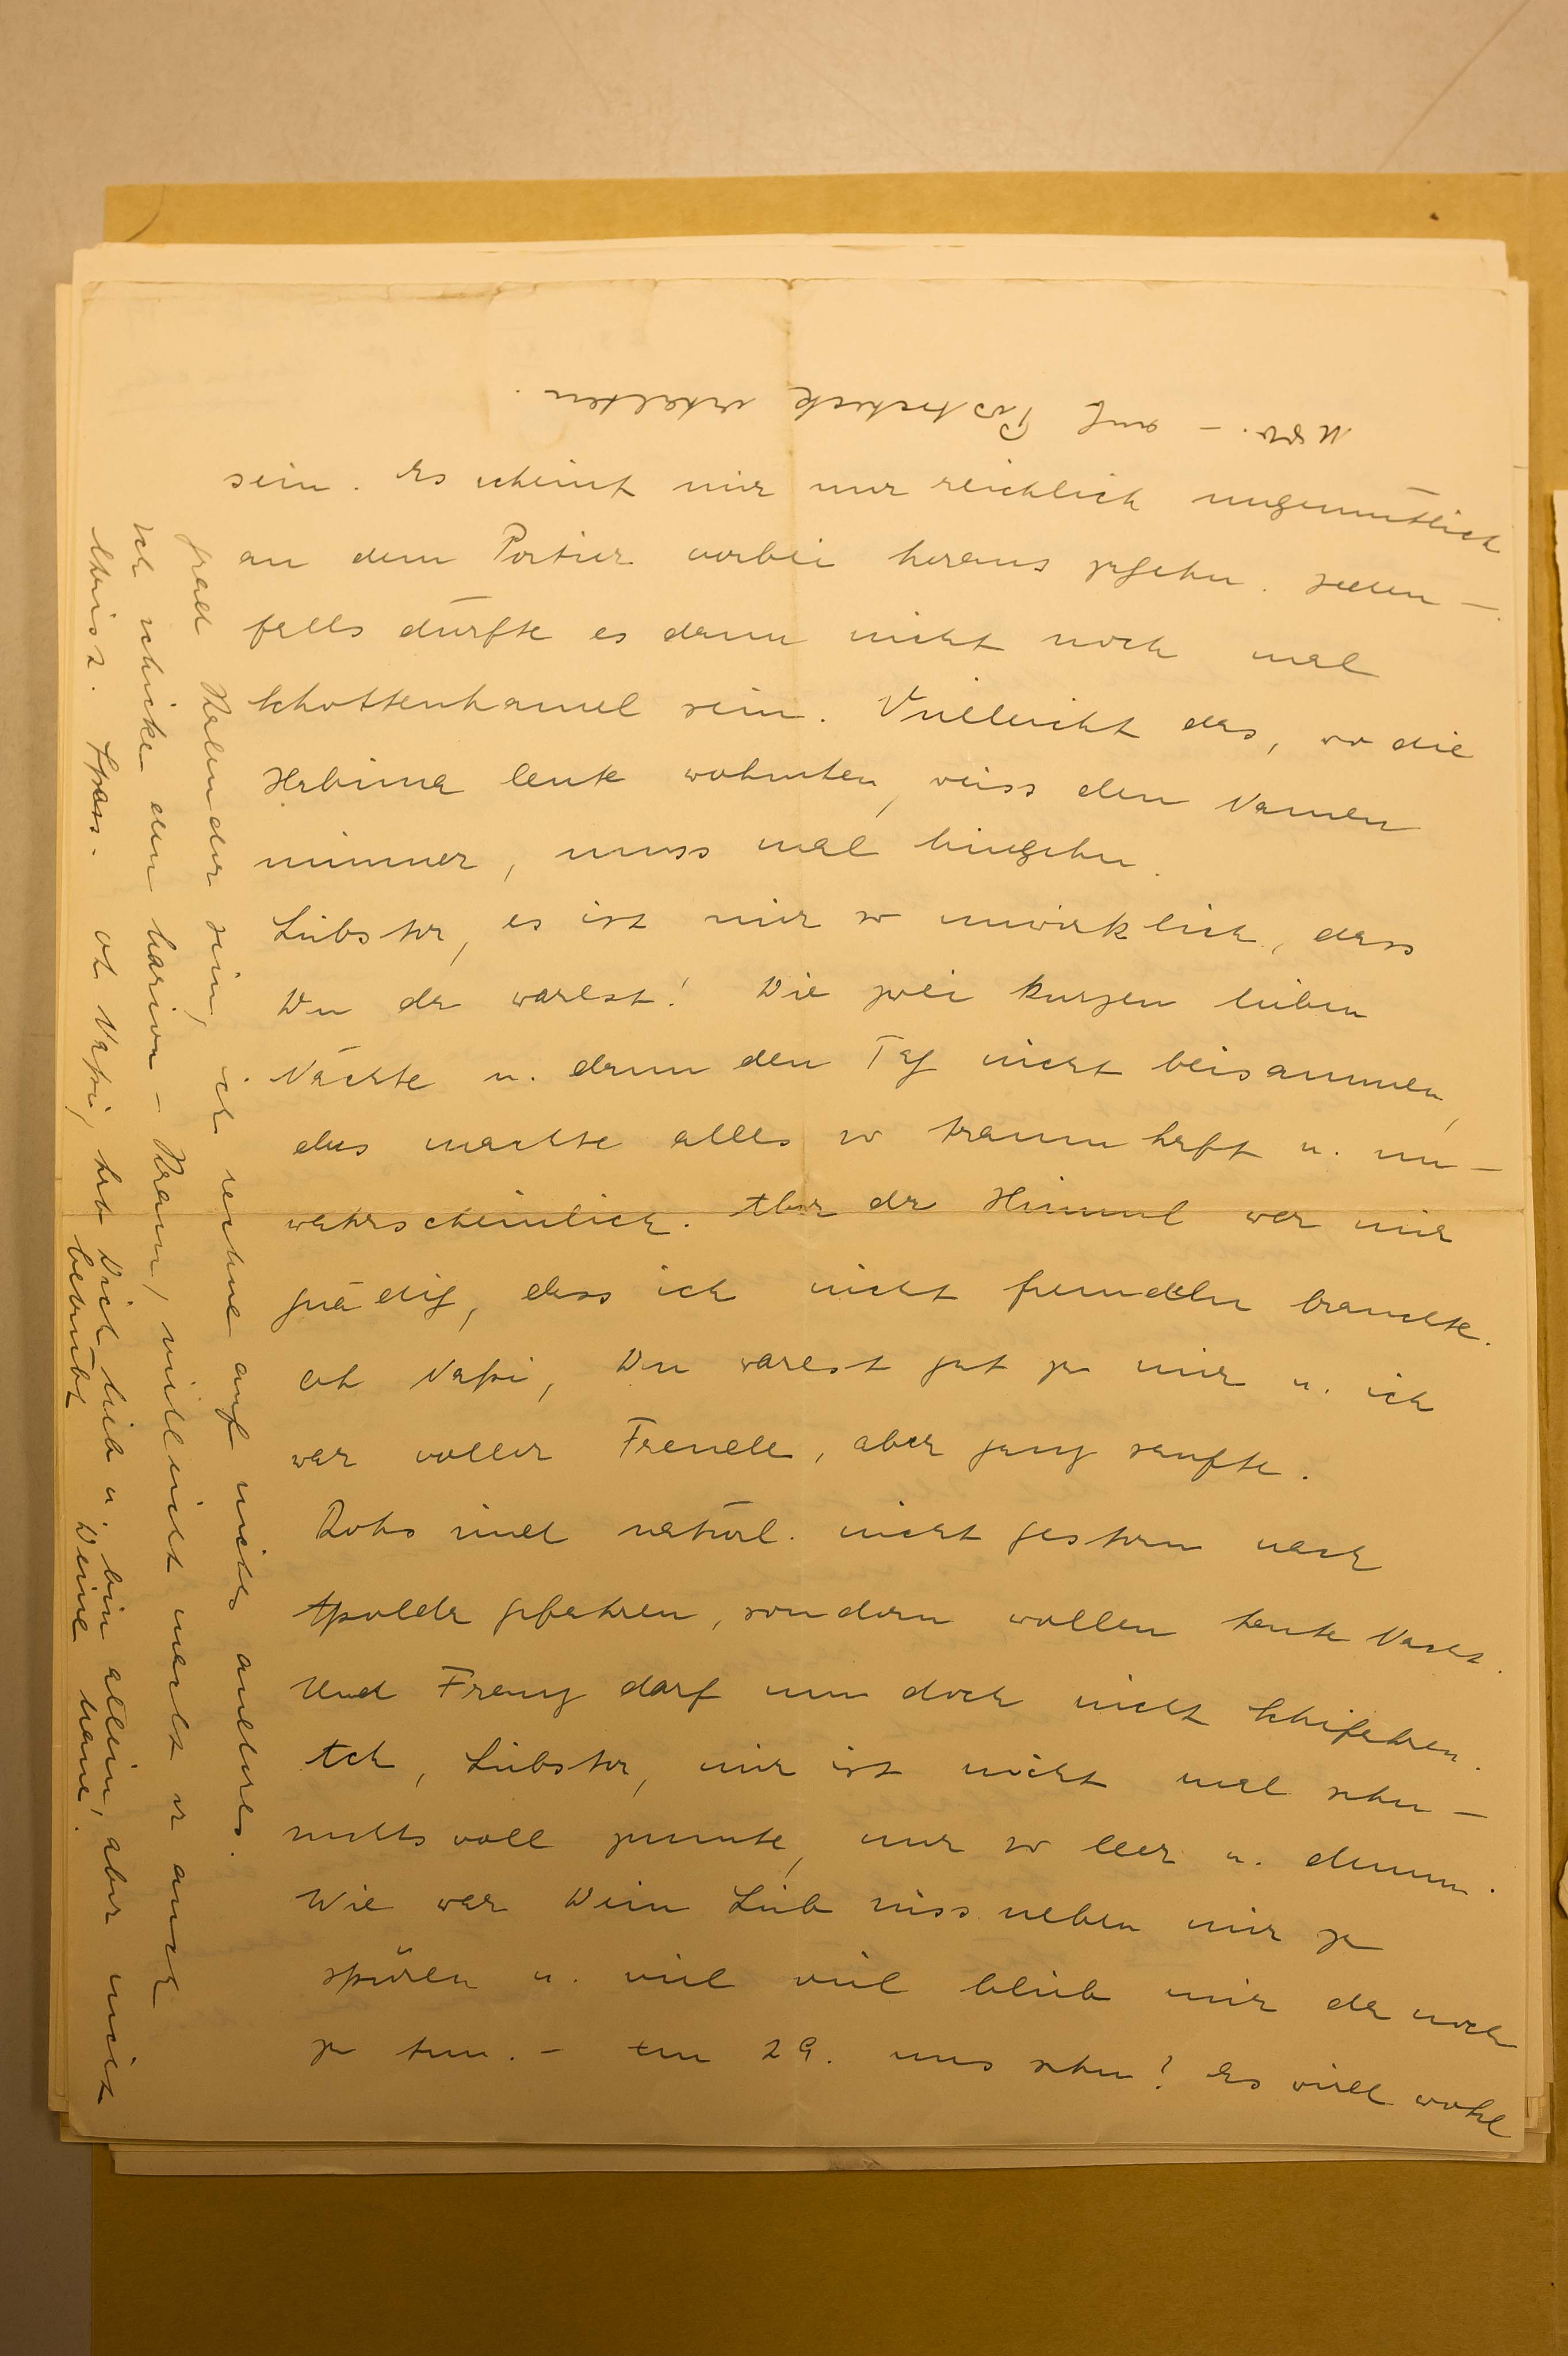 sein. Es scheint mir nur reichlich ungemütlich
an dem Portier vorbei heraus zugehn. Jeden-
falls dürfte es dann nicht noch mal
Schottenhamel sein. Vielleicht das, wo die
Habima leute wohnten, weiss den Namen
nimmer, muss mal hingehn.
Liebster, es ist mir so unwirklich, dass
Du da warest! Die zwei kurzen lieben
Nächte u. dann den Tag nicht beisammen,
das machte alles so traumhaft u. un-
wahrscheinlich. Aber der Himmel war mir
gnädig, dass ich nicht fremdeln brauchte.
Oh Nazi, Du warest gut zu mir u. ich
war voller Freude, aber ganz sanfte.
Rohs sind natürl. nicht gestern nach
Apolda gefahren, sondern wollen heute Nacht.
Und Franz darf nun doch nicht Schifahren.
Ach, Liebster, mir ist nicht mal sehn-
suchts voll zumute, nur so leer u. dumm.
Wie war Dein Leib süss neben mir zu
spüren u. viel viel blieb mir da noch
zu tun. - Am 29. uns sehn? Es wird wohl
grad Kalender sein, ich rechne auf nichts anderes.
Ich schicke den - Kram, vielleicht macht er auch
Spass. Oh Nazi, hab Dich lieb u. bin allein, aber nicht
betrübt Deine
u.s.w. - auf Postscheck erhalten.